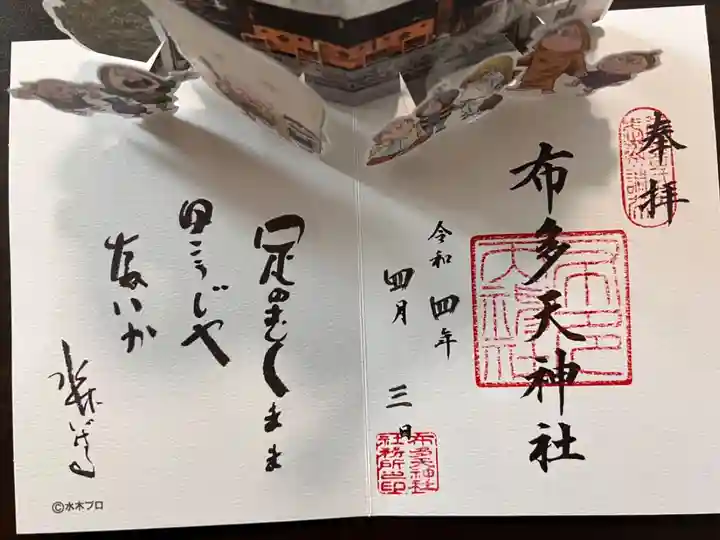 奉拝
布多天神社
令和四年
四月三日
布多天神社
社務所之印
足のむくまま
ゆこうじゃ
ないか
水木しげる
©水木プロ